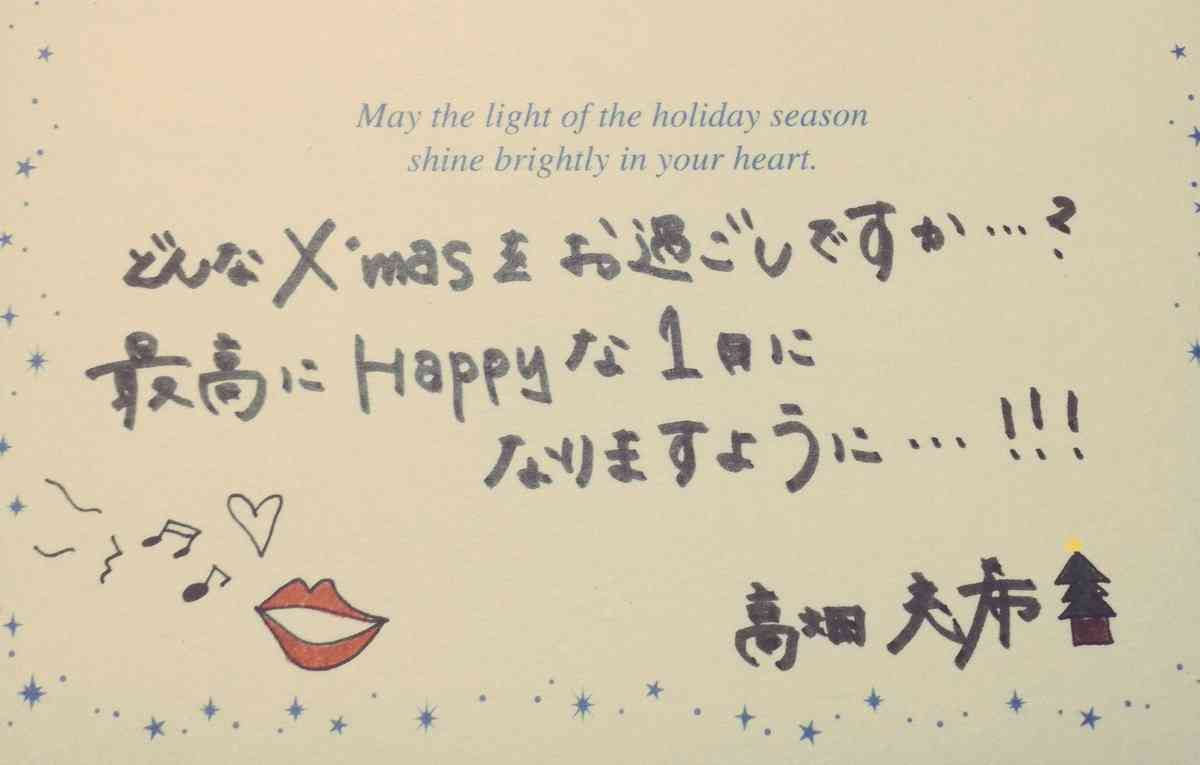 May the light of the holiday season
shine brightly in your heart.
どんなX'masをお過ごしですか…?
最高にHappyな1日に
なりますように…!!!
高畑 充希